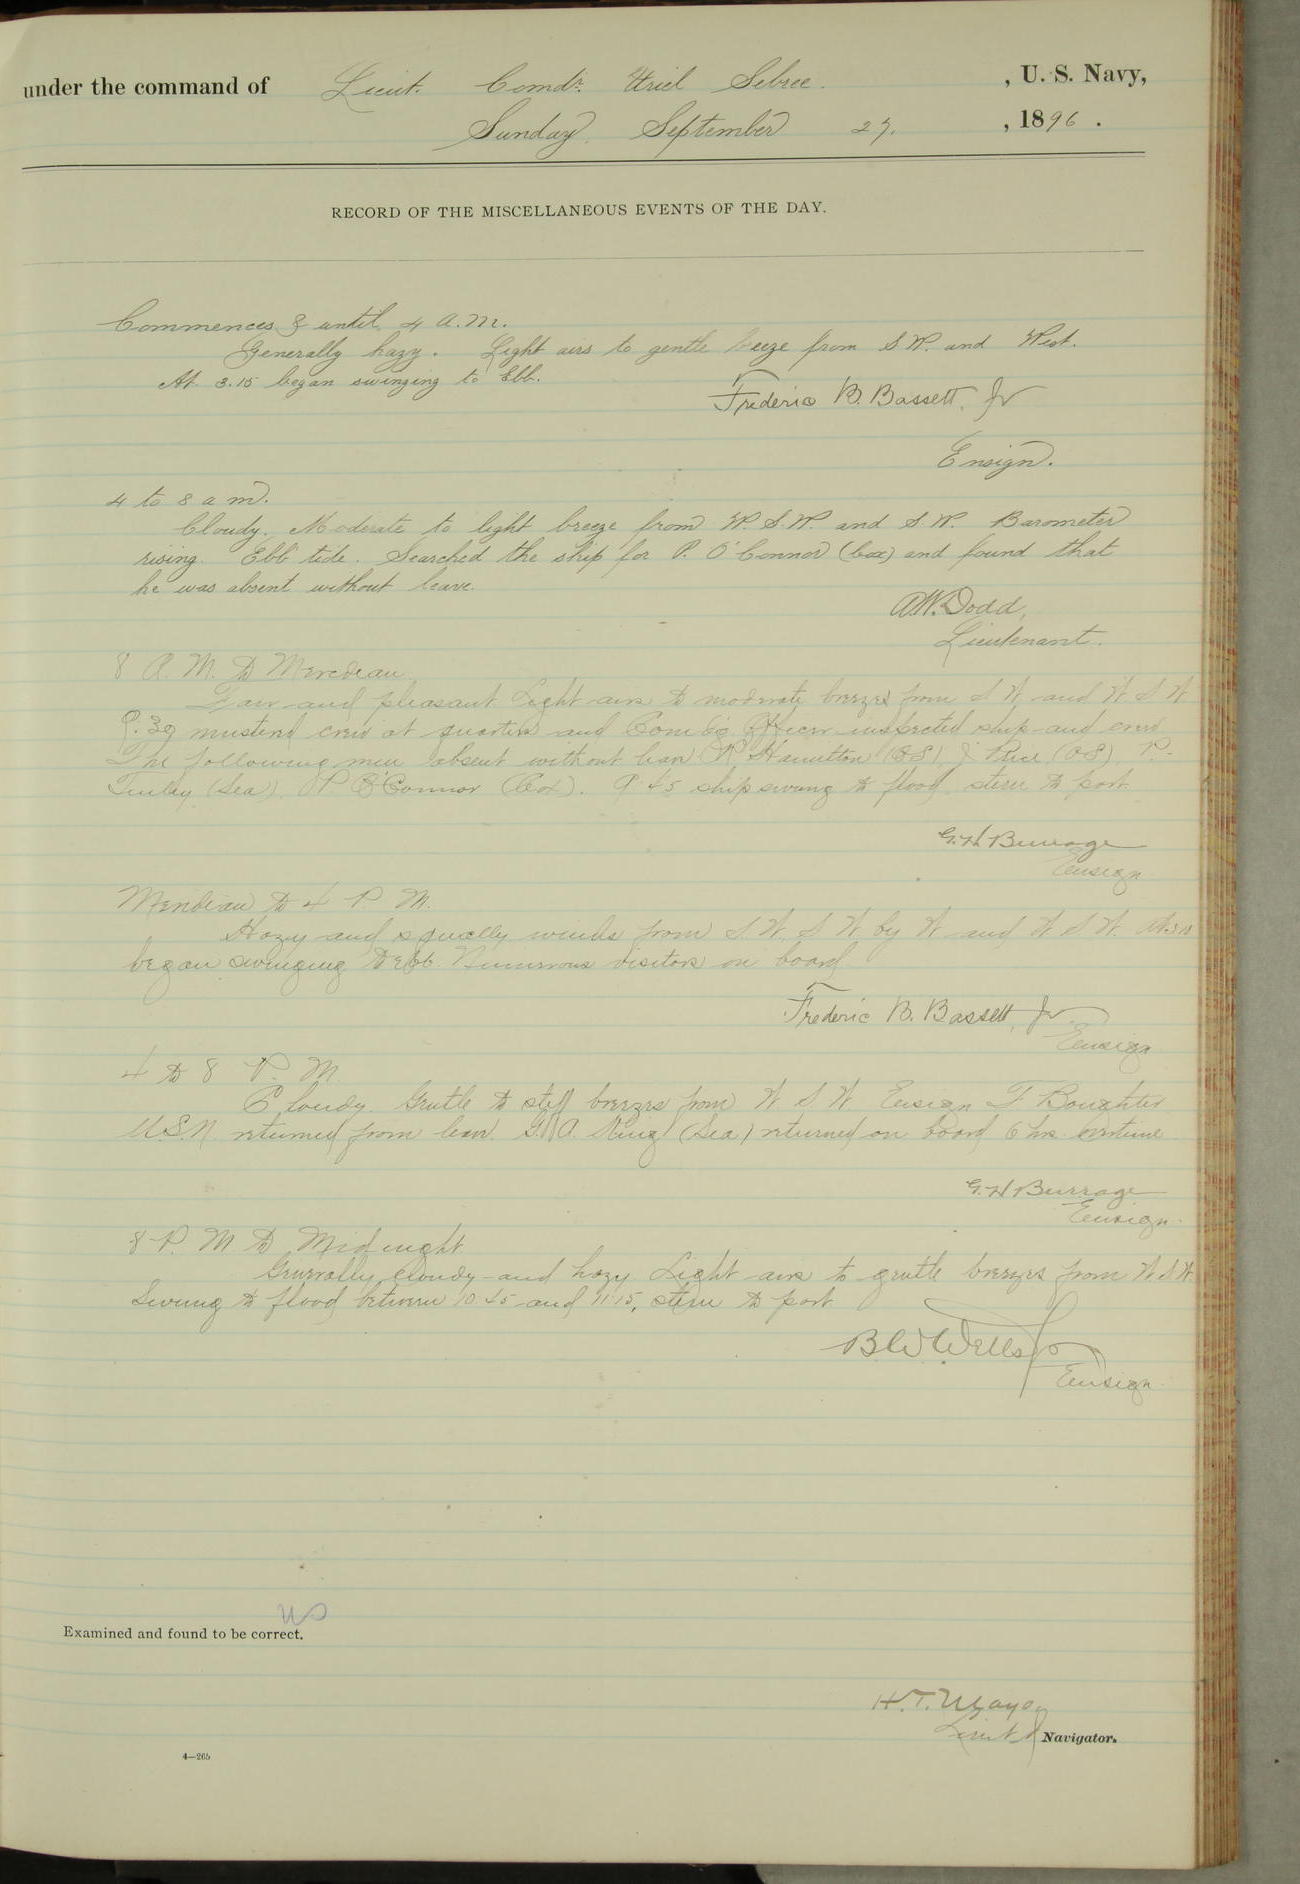 under the command of Lieut. Comdr. Uriel Sebree. , U. S. Navy,
Sunday September 27. , 1896 .
RECORD OF THE MISCELLANEOUS EVENTS OF THE DAY.
Commences & until 4 A.M.
Generally hazy. Light airs to gentle breeze from S W. and West.
At 3.15 began swinging to Ebb.
Frederic B. Bassett, Jr
Ensign.
4 to 8 a m.
Cloudy. Moderate to light breeze from W. S. W. and S. W. Barometer
rising. Ebb tide. Searched the ship for P. O'Connor (Cox) and found that
he was absent without leave.
A.W. Dodd,
Lieutenant.
8 A. M. to Meredian
Fair and pleasant Light airs to moderate breezes from S W and W S W
9.30 mustered crew at quarters and Com'd'g Officer inspected ship and crew
The following men absent without leave R. Hamilton (OS), J. Price (OS) P.
Finley (Sea) P O'Connor (Cox). 9.45 ship swung to flood stern to port
G. H. Burrage
Ensign
Meridian to 4 P. M.
Hazy and squally winds from S. W. S W by W and W S W. At 3.15
began swinging to ebb. Numerous visitors on board
Frederic B. Bassett, Jr
Ensign
4 to 8 P. M.
Cloudy Gentle to stiff breezes from W S W Ensign F Boughter
U.S.N. returned from leave. G. A. King (Sea) returned on board 6 hrs overtime
G. H Burrage
Ensign.
8 P. M to Midnight
Generally cloudy and hazy Light airs to gentle breezes from W.S.W.
Swung to flood between 10.45 and 11.15, stern to port
B W Wells Jr
Ensign.
US
Examined and found to be correct.
H. T. Mayo
Lieut. Navigator.
4—265